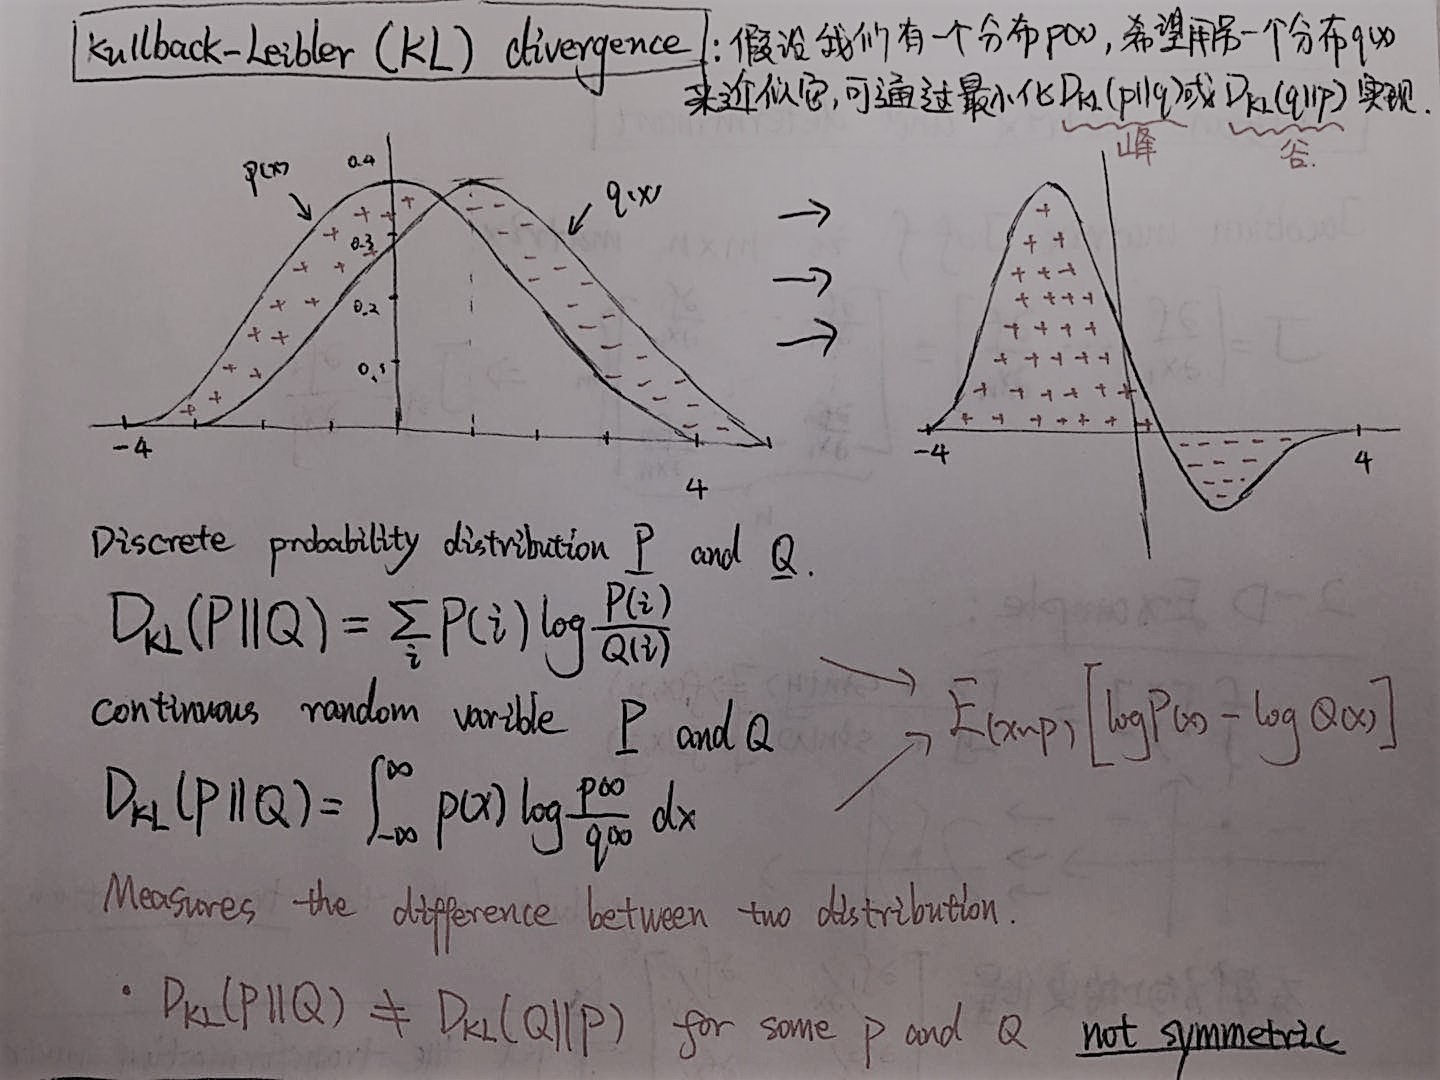 Kullback-Leibler (KL) divergence : 假设我们有一个分布p(x), 希望用另一个分布q(x)
来近似它, 可通过最小化 D_KL(p||q) 或 D_KL(q||p) 实现.
峰 谷.
p(x) 0.4 q(x)
0.3
0.2
0.1
-4 4 -4 4
Discrete probability distribution P and Q.
D_KL(P||Q) = ∑_i P(i) log P(i)/Q(i)
continuous random varible P and Q
E(x~p) [log P(x) - log Q(x)]
D_KL(P||Q) = ∫_{-∞}^{∞} p(x) log p(x)/q(x) dx
Measures the difference between two distribution.
· D_KL(P||Q) ≠ D_KL(Q||P) for some p and Q not symmetric